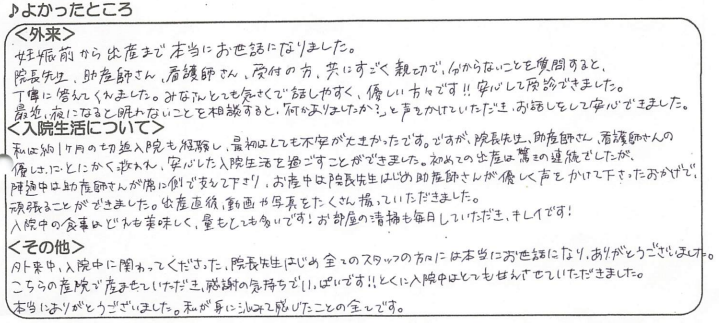 ♪よかったところ
＜外来＞
妊娠前から出産まで本当にお世話になりました。
院長先生、助産師さん、看護師さん、受付の方、共にすごく親切で、分からないことを質問すると、
丁寧に答えてくれました。みなさんとても気さくで話しやすく、優しい方々です!!安心して受診できました。
最近、夜になると眠れないことを相談すると、"何かありましたか?"と声をかけていただき、お話しをして安心できました。
＜入院生活について＞
私は約1ヶ月の切迫入院も経験し、最初はとても不安が大きかったです。ですが、院長先生、助産師さん、看護師さんの
優しさにとにかく救われ、安心した入院生活を過ごすことができました。初めての出産は驚きの連続でしたが、
陣痛中は助産師さんが常に側で支えて下さり、お産中は院長先生はじめ助産師さんが優しく声をかけて下さったおかげで、
頑張ることができました。出産直後、動画や写真をたくさん撮っていただきました。
入院中の食事はどれも美味しく、量もとても多いです!お部屋の清掃も毎日していただき、キレイです!
＜その他＞
外来中、入院中に関わってくださった、院長先生はじめ全てのスタッフの方々には本当にお世話になり、ありがとうございました。
こちらの産院で産ませていただき、感謝の気持ちでいっぱいです!!とくに入院中はとても させていただきました。
本当にありがとうございました。私が身に沁みて感じたことの全てです。